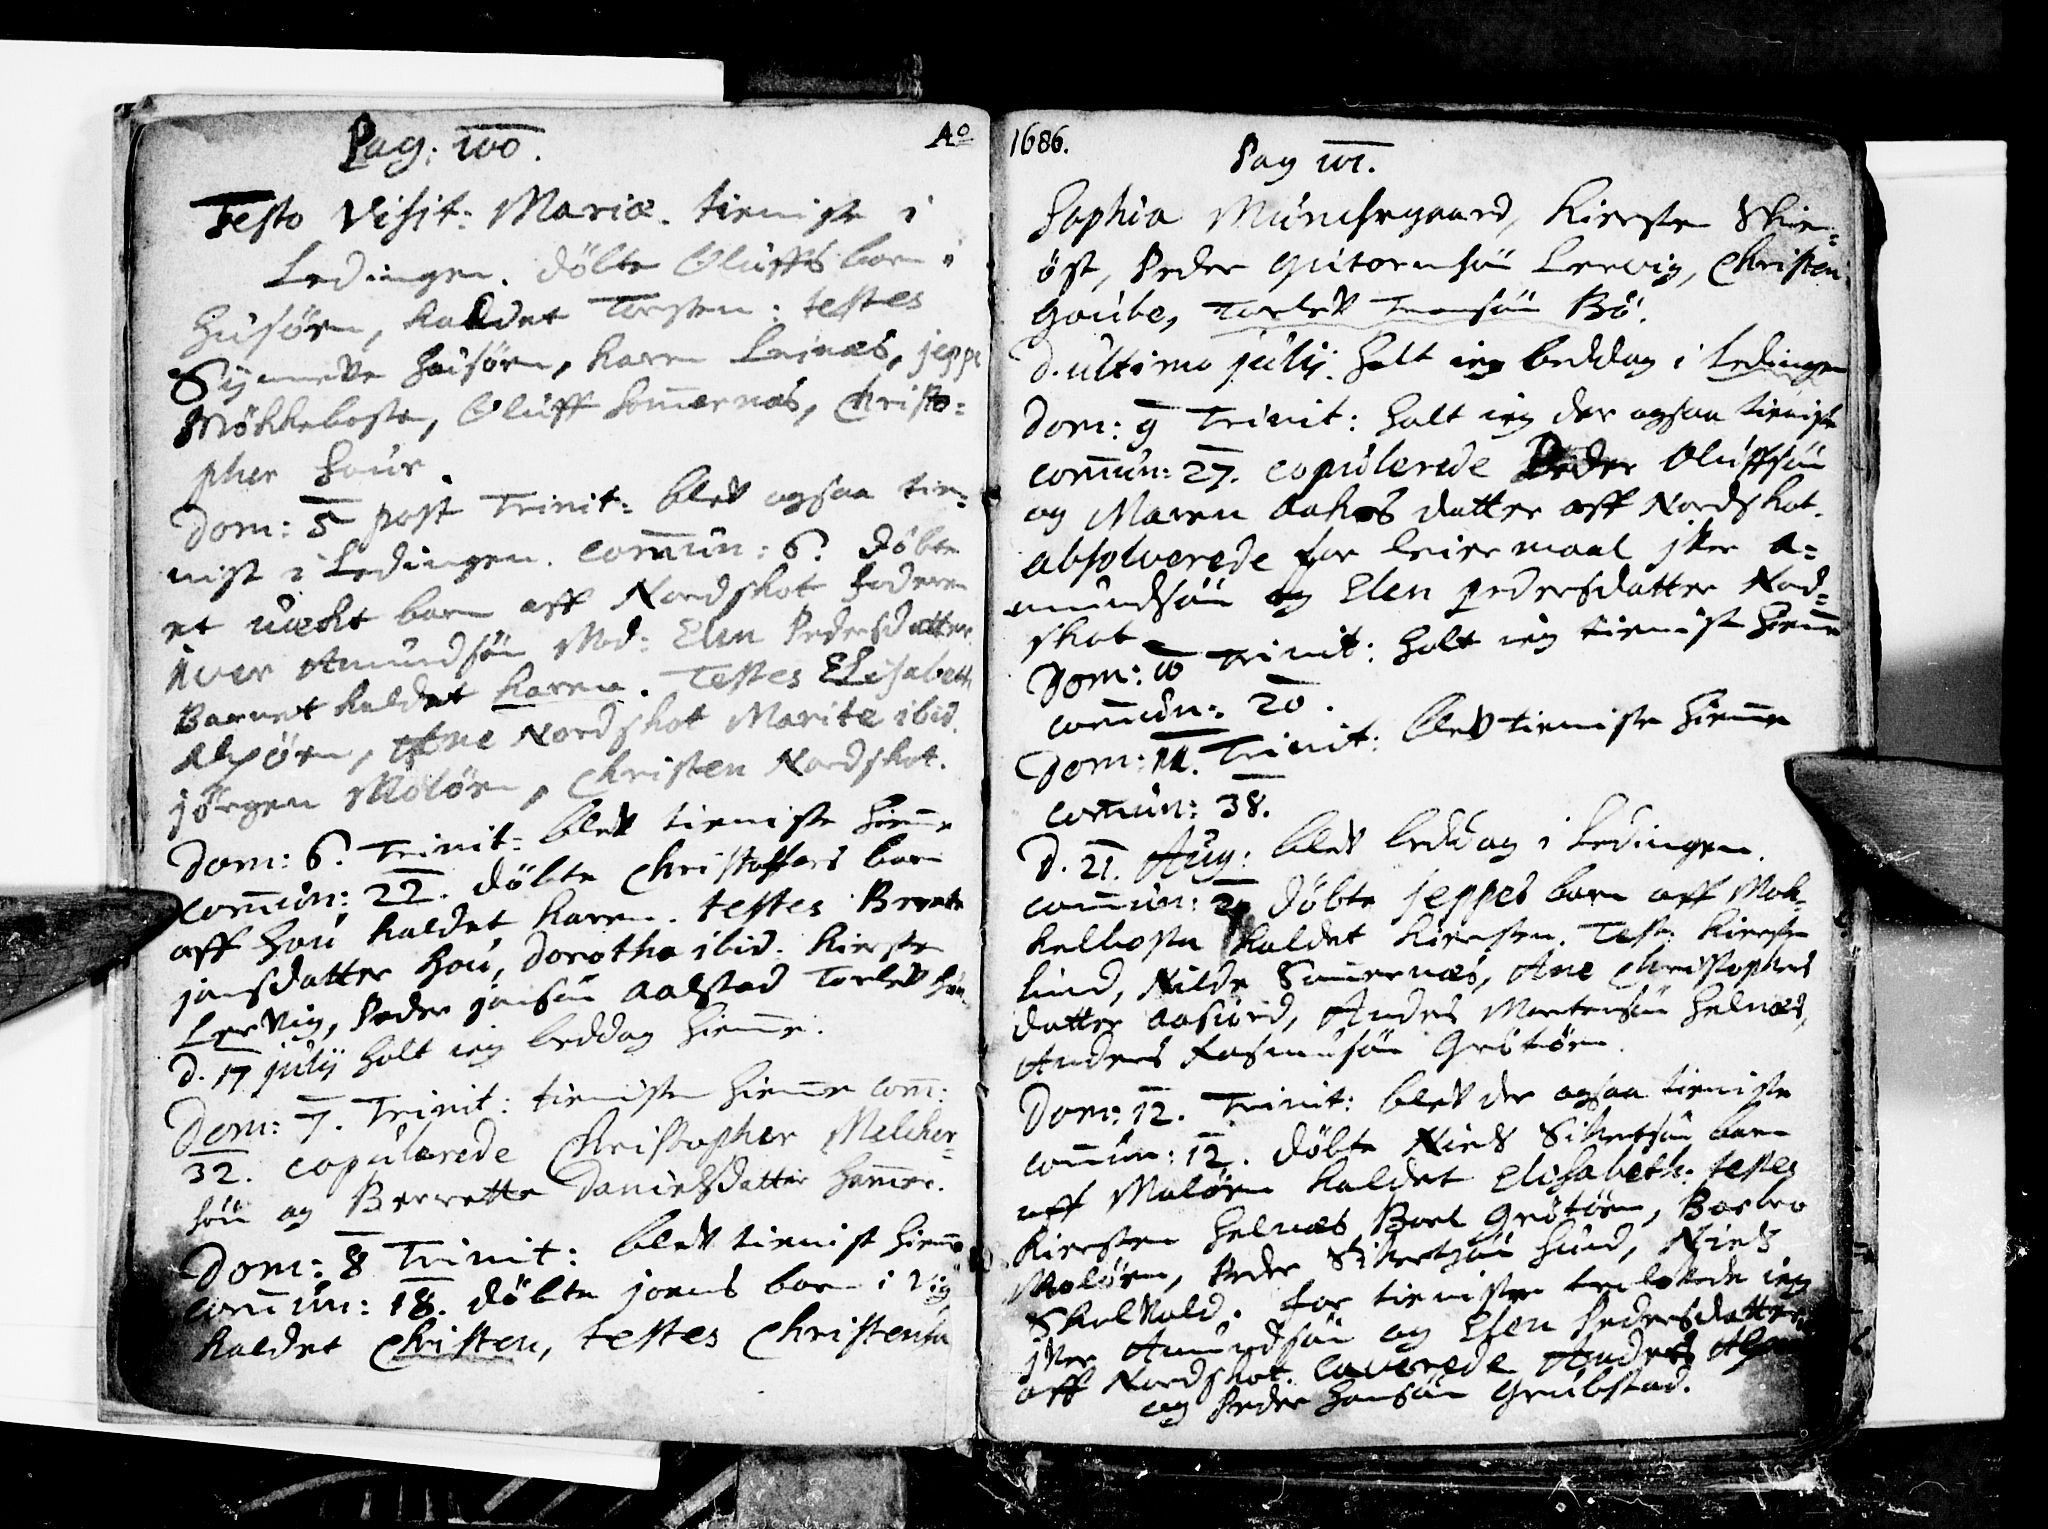 Pag: 100.
Aº
Festo Visit: Mariæ. tieniste i
Ledingen. döbte Oluffs barn i
Husöen, kaldet Torsten: testes
Synneve Husöen, Karen Leinæs, jeppe
Mökkeboste, Oluff Sommernæs, Christo-
pher Houe.
Dom: 5 post Trinit: blev ogsaa tie-
nist i Ledingen. commun: 6. döbte
et uæcht barn aff Nordskot faderen
iver Amundsön Mod: Elen Pedersdatter
Barnet kaldet Karen. Testes Elisabeth
Alpöen, Ane Nordskot Marite ibid.
jörgen Molöen, Christen Nordskot.
Dom: 6. Trinit: blev tieniste hiemme
commun: 22. döbte Christoffers barn
aff Hou kaldet Karen. testes Berete
jonsdatter Hou, Dorothe ibid. Kiersten
Lervig, Peder jonsön Aalstad Torlev
D. 17 julij holt ieg beddag hiemme.
Dom: 7. Trinit: tienisten hiemme com:
32. copulerede Christopher Melcher-
sön og Berrette Danielsdatter Hammer.
Dom: 8 Trinit: blev tienist hiemme
commun: 18. döbte joens barn i Vig
kaldet Christen, testes Christensen
1686.
Pag 101.
Sophia Munchegaard, Kiersten Skien-
öst, Peder Gutormsön Lervig, Christen
Goube, Torlev Tronsön Bö.
D. ultimo julij. holt ieg beddag i Ledingen
Dom: 9 Trinit: holt ieg der ogsaa tieniste
commun: 27. copulerede Peder Oluffsön
og Maren Aakesdatter aff Nordskot.
absolverede for leiermaal jver A-
mundsön og Elen pedersdatter Nord-
skot
Dom: 10 Trinit: holt ieg tienist hiemme
commun: 20.
Dom: 11. Trinit: blev tieniste hiemme
commun: 38.
D. 21. Aug: blev beddag i Ledingen.
commun: döbte jeppes barn aff Mök-
kelboste kaldet Kiersten. Test: Kiersten
Lund, Nilde Sommernæs, Ane Christophers
datter Aasiord, Anders Mortensön Helnæs,
Anders Rasmusön Grötöen.
Dom: 12. Trinit: blev der ogsaa tieniste
commun: 12. döbte Niels Sivertsön barn
aff Molöen kaldet Elisabeth: testes
Kiersten Helnæs, Boel Grötöen, Barbro
Molöen, Peder Sivertsön Hund, Niels
Skielvold. for tienisten trolovede ieg
jver Amundsön og Elen Pedersdatter
aff Nordskot. caverede Anders
og Peder Hansön Grubstad.